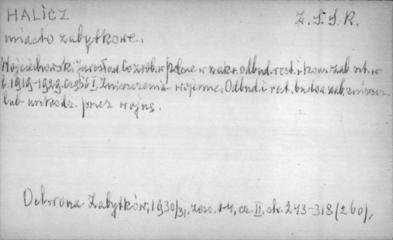 HALICZ Z.S.S.R.
miasto zabytkowe.
Wojciechowski Jarosław. Co zrob. w Polsce w zakr. odbud. rest. i kons. zab. szt. w
l. 1919-1929. Część I. Zniszczenia wojenne. Odbud. i rest. budow. zab. zniszcz.
lub uszkodz. przez wojnę.
Ochrona Zabytków, 1930/31, zesz. 1-4, cz. II, str. 243-318 (260),